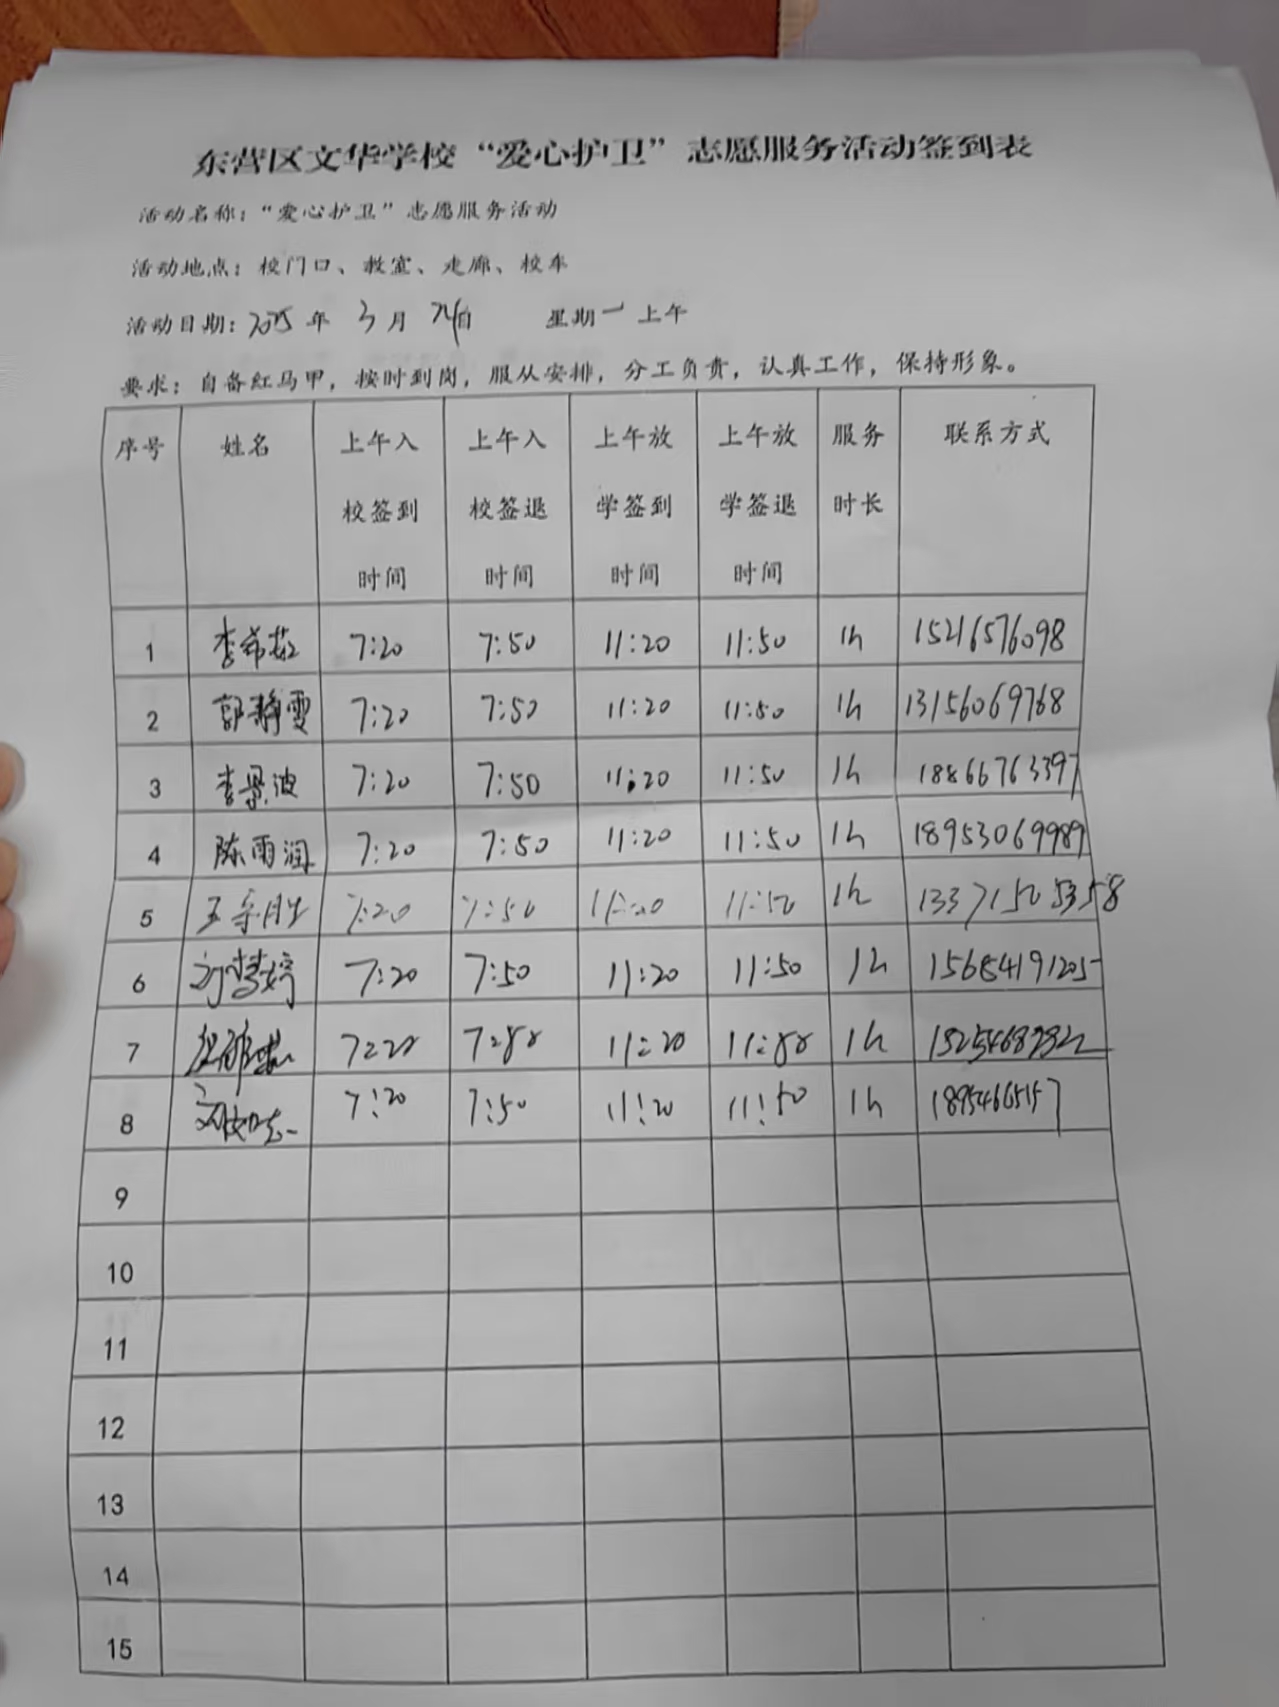 东营区文华学校“爱心护卫”志愿服务活动签到表
活动名称：“爱心护卫”志愿服务活动
活动地点：校门口、教室、走廊、校车
活动日期：2025年 3月 24日 星期一 上午
要求：自备红马甲，按时到岗，服从安排，分工负责，认真工作，保持形象。
序号 姓名 上午入校签到时间 上午入校签退时间 上午放学签到时间 上午放学签退时间 服务时长 联系方式
1 李希茹 7:20 7:50 11:20 11:50 1h 15216576098
2 郭静雯 7:20 7:50 11:20 11:50 1h 13156069768
3 李景波 7:20 7:50 11:20 11:50 1h 18866763397
4 陈雨润 7:20 7:50 11:20 11:50 1h 18953069989
5 王宗月 7:20 7:50 11:20 11:50 1h 13371505358
6 刘慧婷 7:20 7:50 11:20 11:50 1h 15684191205
7 7:20 7:50 11:20 11:50 1h
8 7:20 7:50 11:20 11:50 1h 18954665157
9
10
11
12
13
14
15